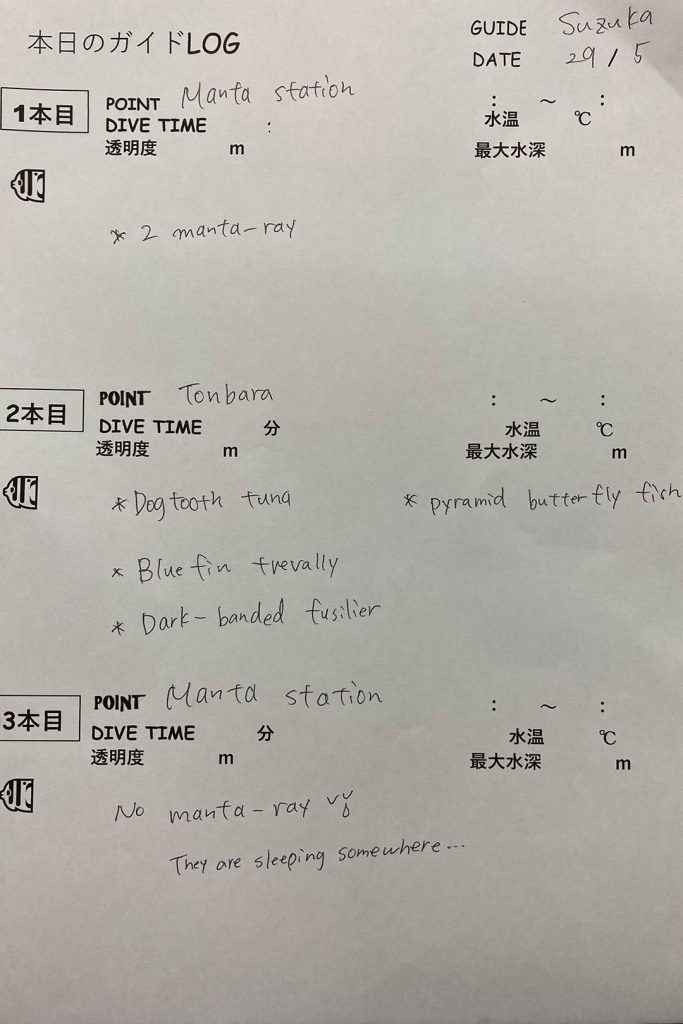 本日のガイドLOG
GUIDE Suzuka
DATE 29/5
1本目 POINT Manta station : ~ :
DIVE TIME : 水温 ℃
透明度 m 最大水深 m
* 2 manta-ray
2本目 POINT Tonbara : ~ :
DIVE TIME 分 水温 ℃
透明度 m 最大水深 m
* Dogtooth tuna * pyramid butterfly fish
* Blue fin trevally
* Dark-banded fusilier
3本目 POINT Manta station : ~ :
DIVE TIME 分 水温 ℃
透明度 m 最大水深 m
No manta-ray
They are sleeping somewhere...